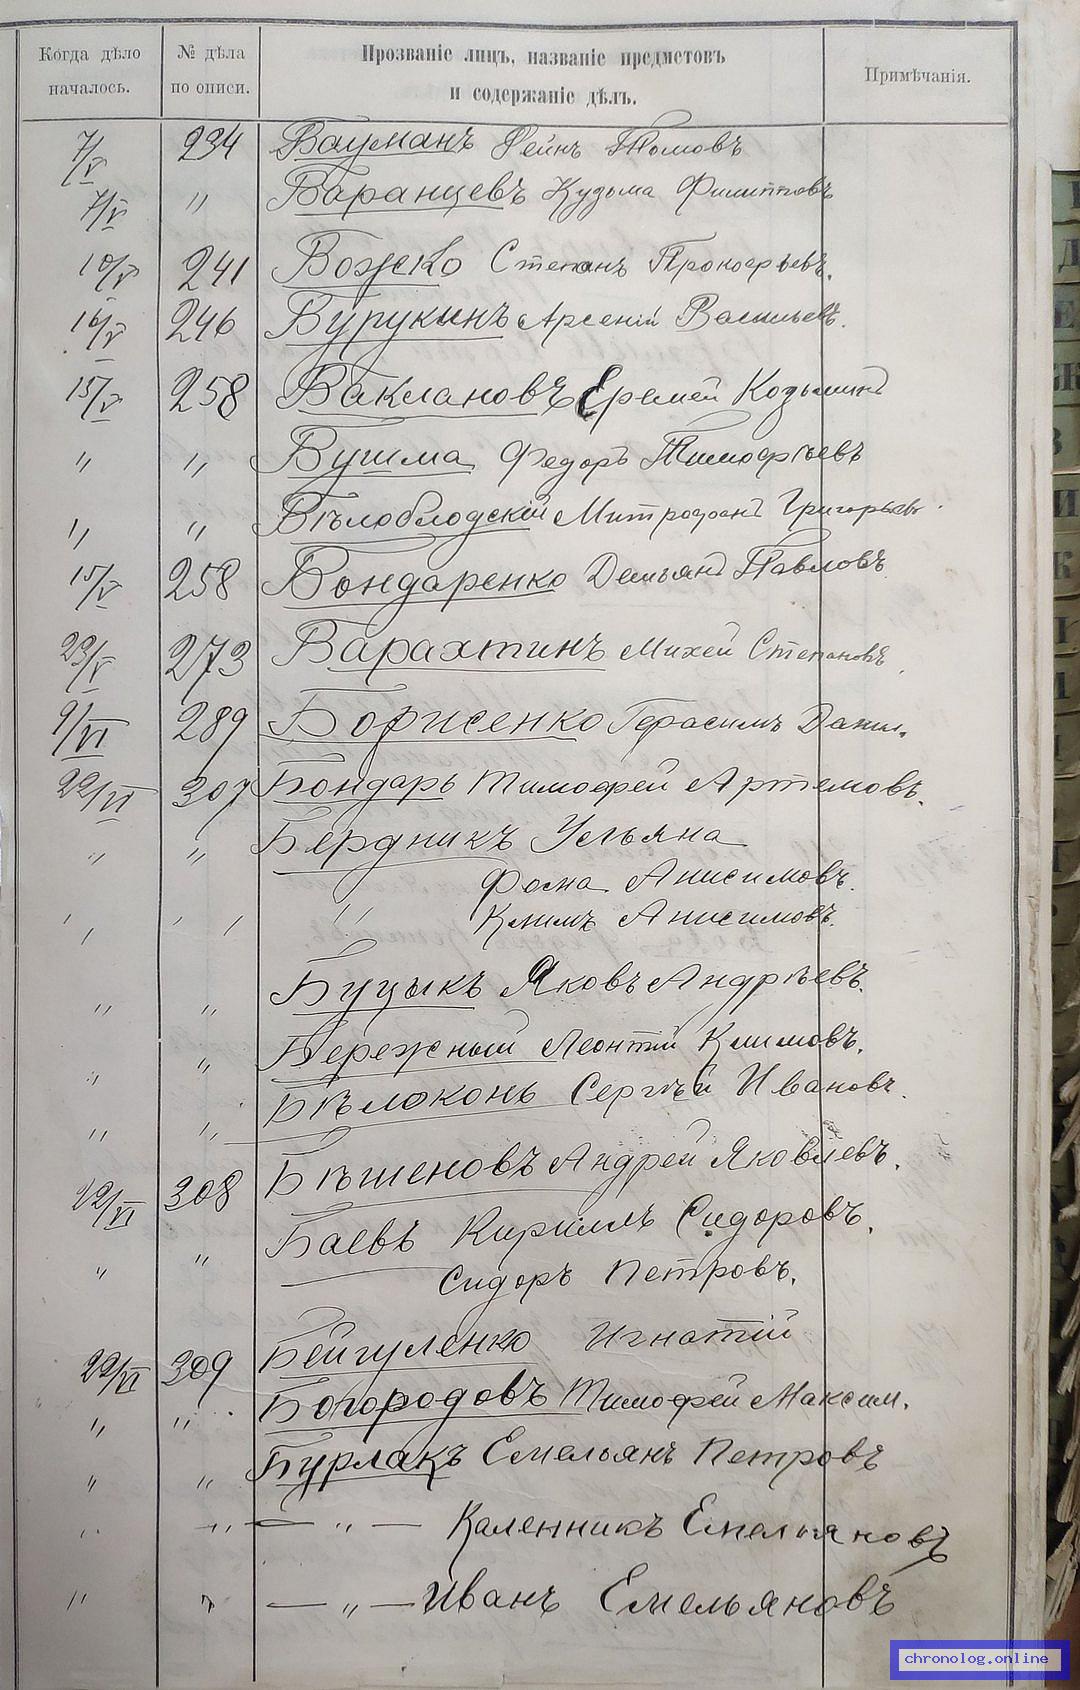 Когда дѣло началось.
№ дѣла по описи.
Прозваніе лицъ, названіе предметовъ и содержаніе дѣлъ.
Примѣчанія.
7/V 234 Бауманъ Рейнъ Томовъ
7/V " Баранцевъ Кузьма Филипповъ
10/V 241 Божко Степанъ Прокофьевъ.
16/V 246 Бурукинъ Арсеній Васильевъ.
15/V 258 Баклановъ Еремей Козьминъ
" " Бушма Федоръ Тимофѣевъ
" " Бѣлоблодскій Митрофанъ Григорьевъ.
15/V 258 Бондаренко Демьянъ Павловъ
23/V 273 Барахтинъ Михей Степановъ
9/VI 289 Борисенко Герасимъ Данил.
22/VI 307 Бондарь Тимофей Артемовъ.
" " Бердникъ Ульяна
Фома Анисимовъ.
" " " Климъ Анисимовъ.
" " Буцыкъ Яковъ Андрѣевъ.
" " Бережный Леонтій Климовъ.
" " Бѣлоконь Сергѣй Ивановъ.
22/VI 308 Бѣшеновъ Андрей Яковлевъ.
" " Баевъ Кириллъ Сидоровъ.
Сидоръ Петровъ.
22/VI 309 Бейгуленко Игнатій
" " Богородовъ Тимофей Максим.
" " Бурлакъ Емельянъ Петровъ
" " — " — Каленникъ Емельяновъ
" " — " — Иванъ Емельяновъ
chronolog.online